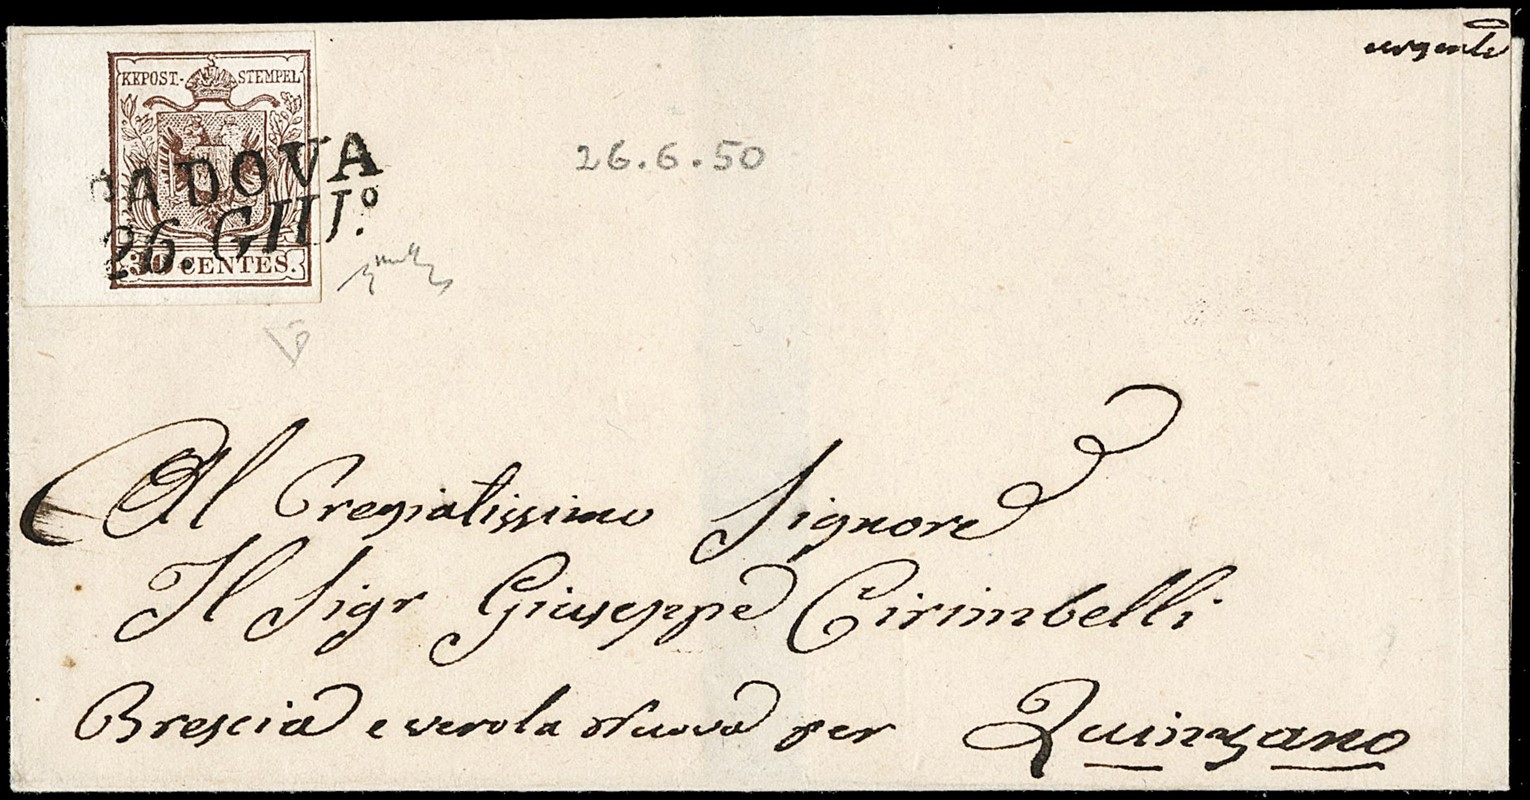 urgente
KKPOST.-STEMPEL
PADOVA
26. GIU.º
30 CENTES.
26.6.50
Al Pregiatissimo Signore
Il Sigr Giuseppe Cirimbelli
Brescia e verola Nuova per Quinzano